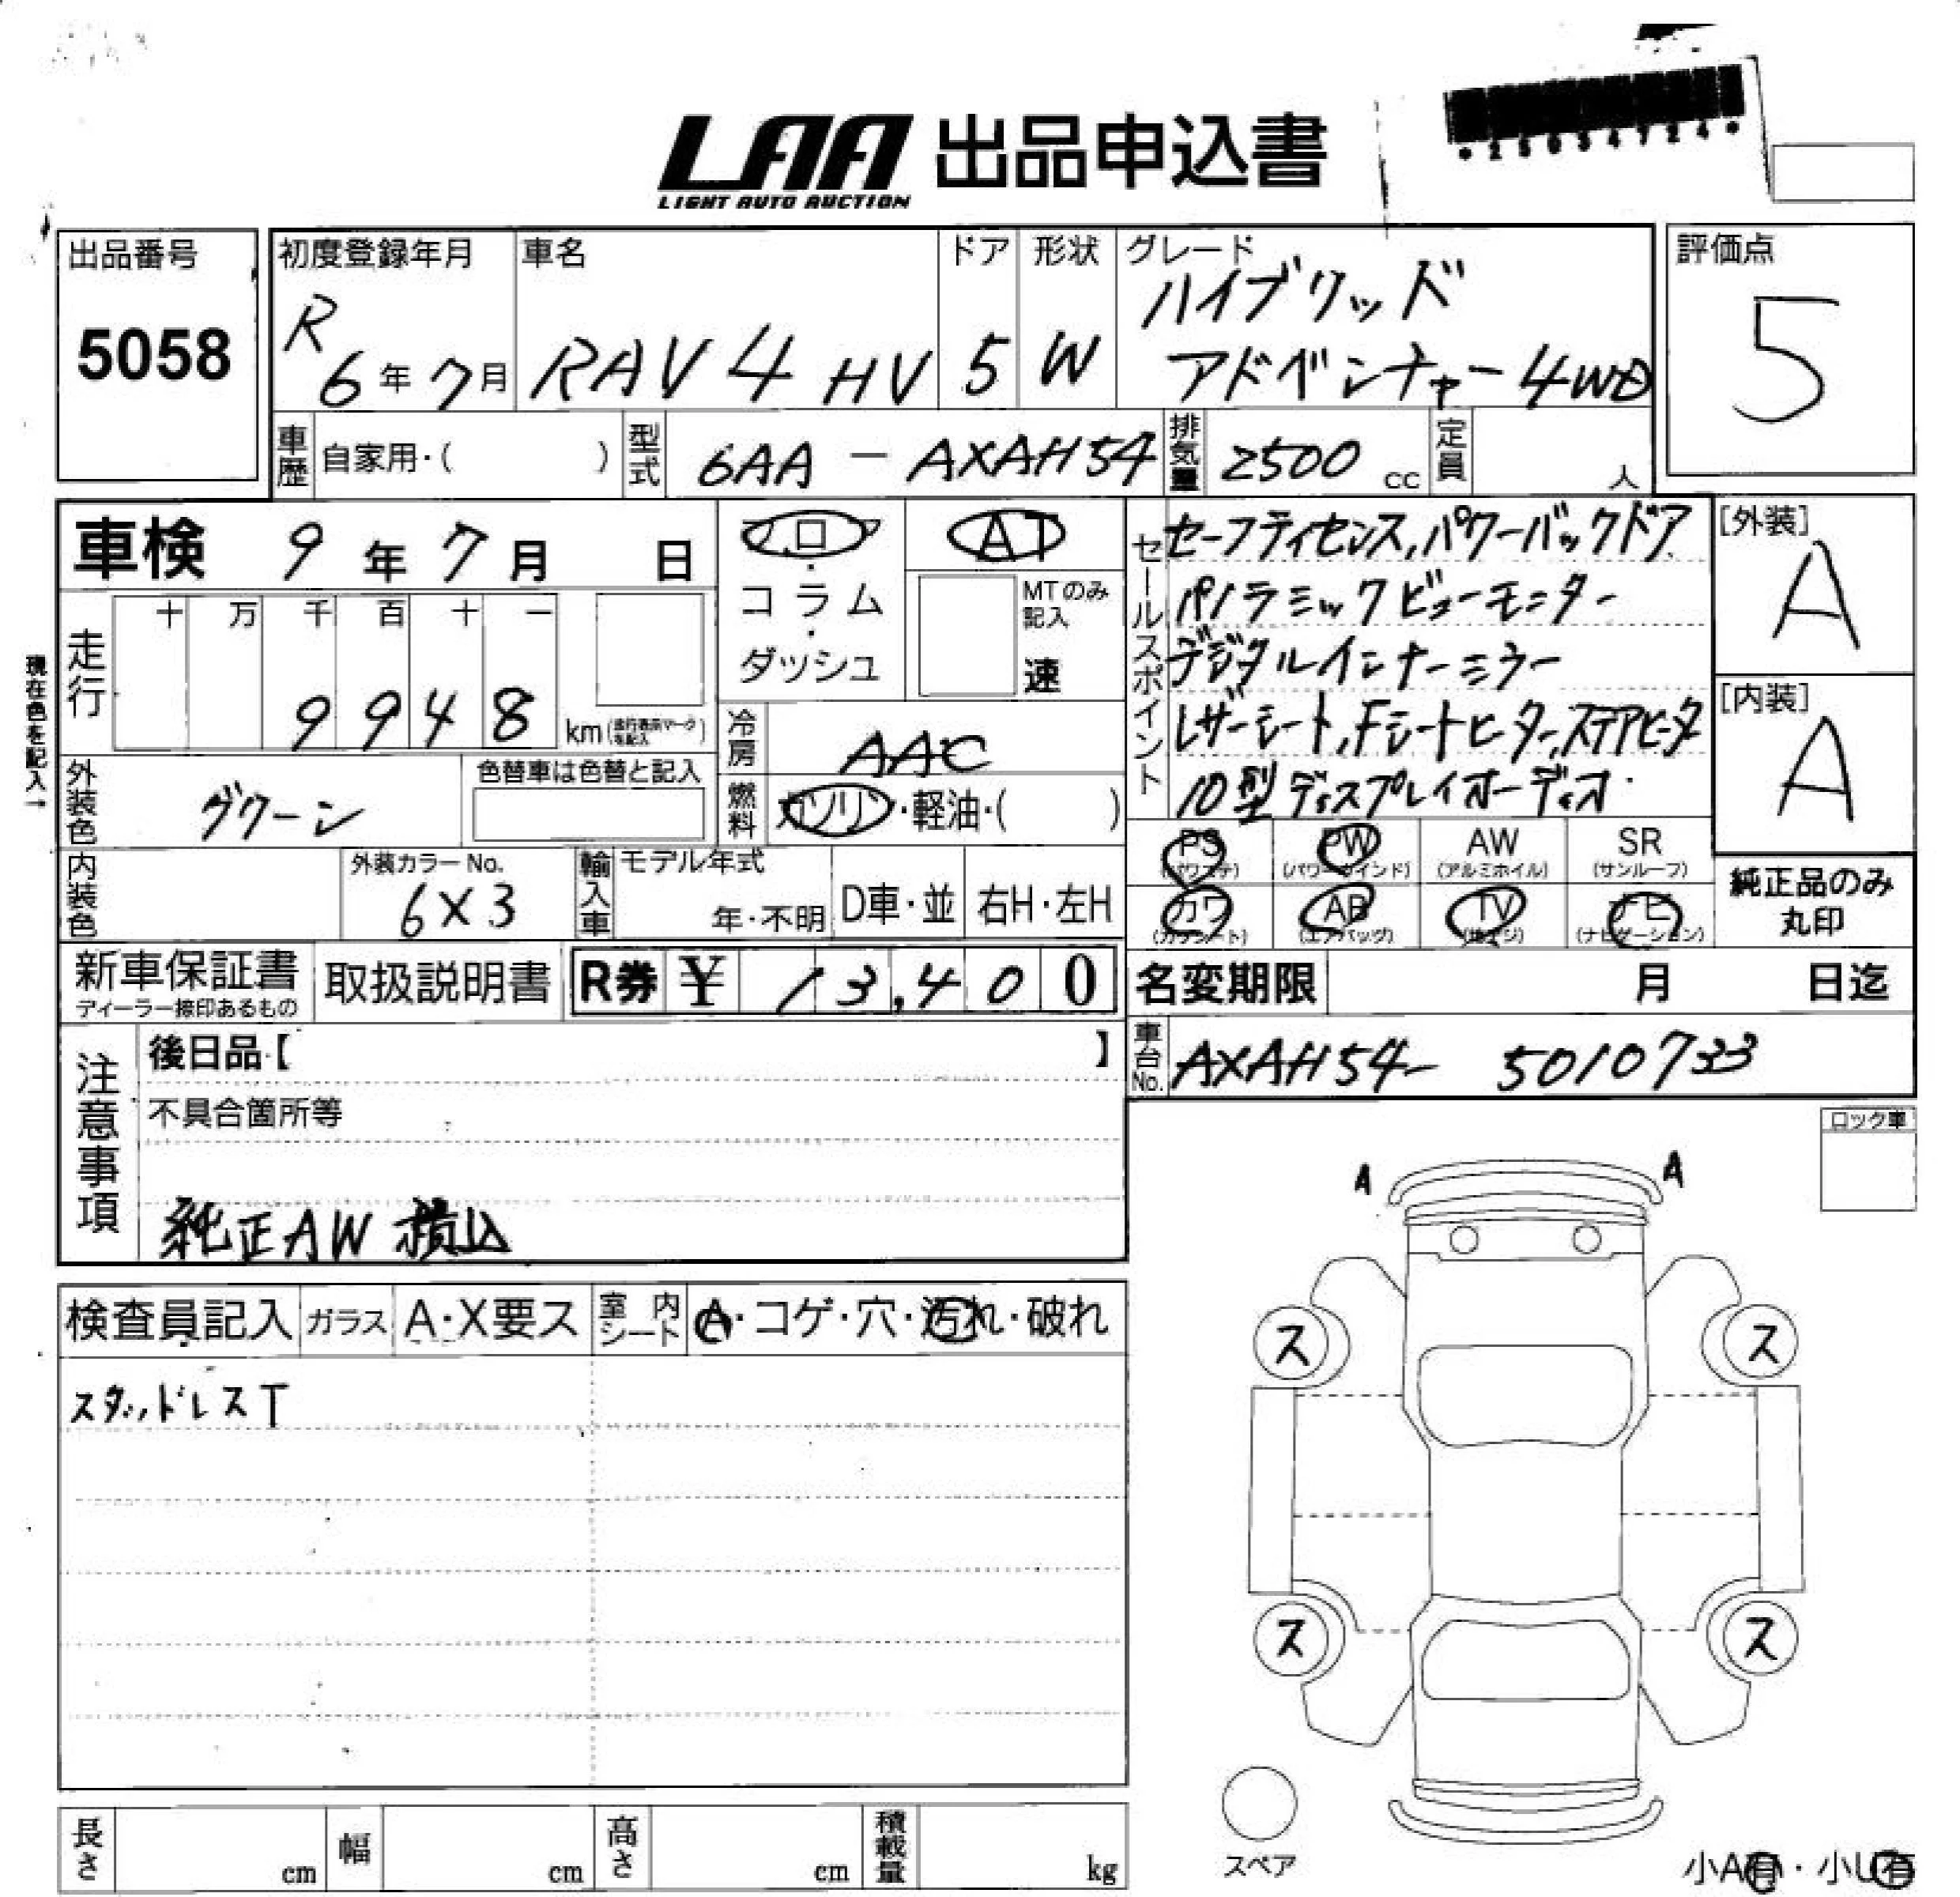 LAA 出品申込書
LIGHT AUTO AUCTION
出品番号
5058
初度登録年月
R
6年7月
車名
RAV4 HV
ドア
5
形状
W
グレード
ハイブリッド
アドベンチャー4WD
評価点
5
車歴
自家用・( )
型式
6AA-AXAH54
排気量
2500 cc
定員
人
車検 9年7月 日
フロア
・
コラム
・
ダッシュ
AT
MTのみ
記入
速
セールスポイント
セーフティセンス,パワーバックドア
パノラミックビューモニター
デジタルインナーミラー
レザーシート,Fシートヒーター,ステアヒータ
10型ディスプレイオーディオ
[外装]
A
[内装]
A
現在色を記入→
走行
十 万 千 百 十 一
9 9 4 8
km
冷房
AAC
外装色
グリーン
色替車は色替と記入
燃料
ガソリン・軽油・( )
PS
(パワステ)
PW
(パワーウインド)
AW
(アルミホイル)
SR
(サンルーフ)
カワ
AB
(エアバッグ)
TV
ナビ
(ナビゲーション)
純正品のみ
丸印
内装色
外装カラーNo.
6X3
輸入車
モデル年式
年・不明
D車・並
右H・左H
新車保証書
取扱説明書
R券 ¥ 13,400
名変期限 月 日迄
注意事項
後日品【 】
不具合箇所等
純正AW積込
車台No.
AXAH54- 5010733
ロック車
A A
検査員記入
ガラス
A・X要ス
室内
シート
A・コゲ・穴・汚れ・破れ
スタッドレスT
ス ス
ス ス
スペア
長さ cm
幅 cm
高さ cm
積載量 kg
小A有・小U有